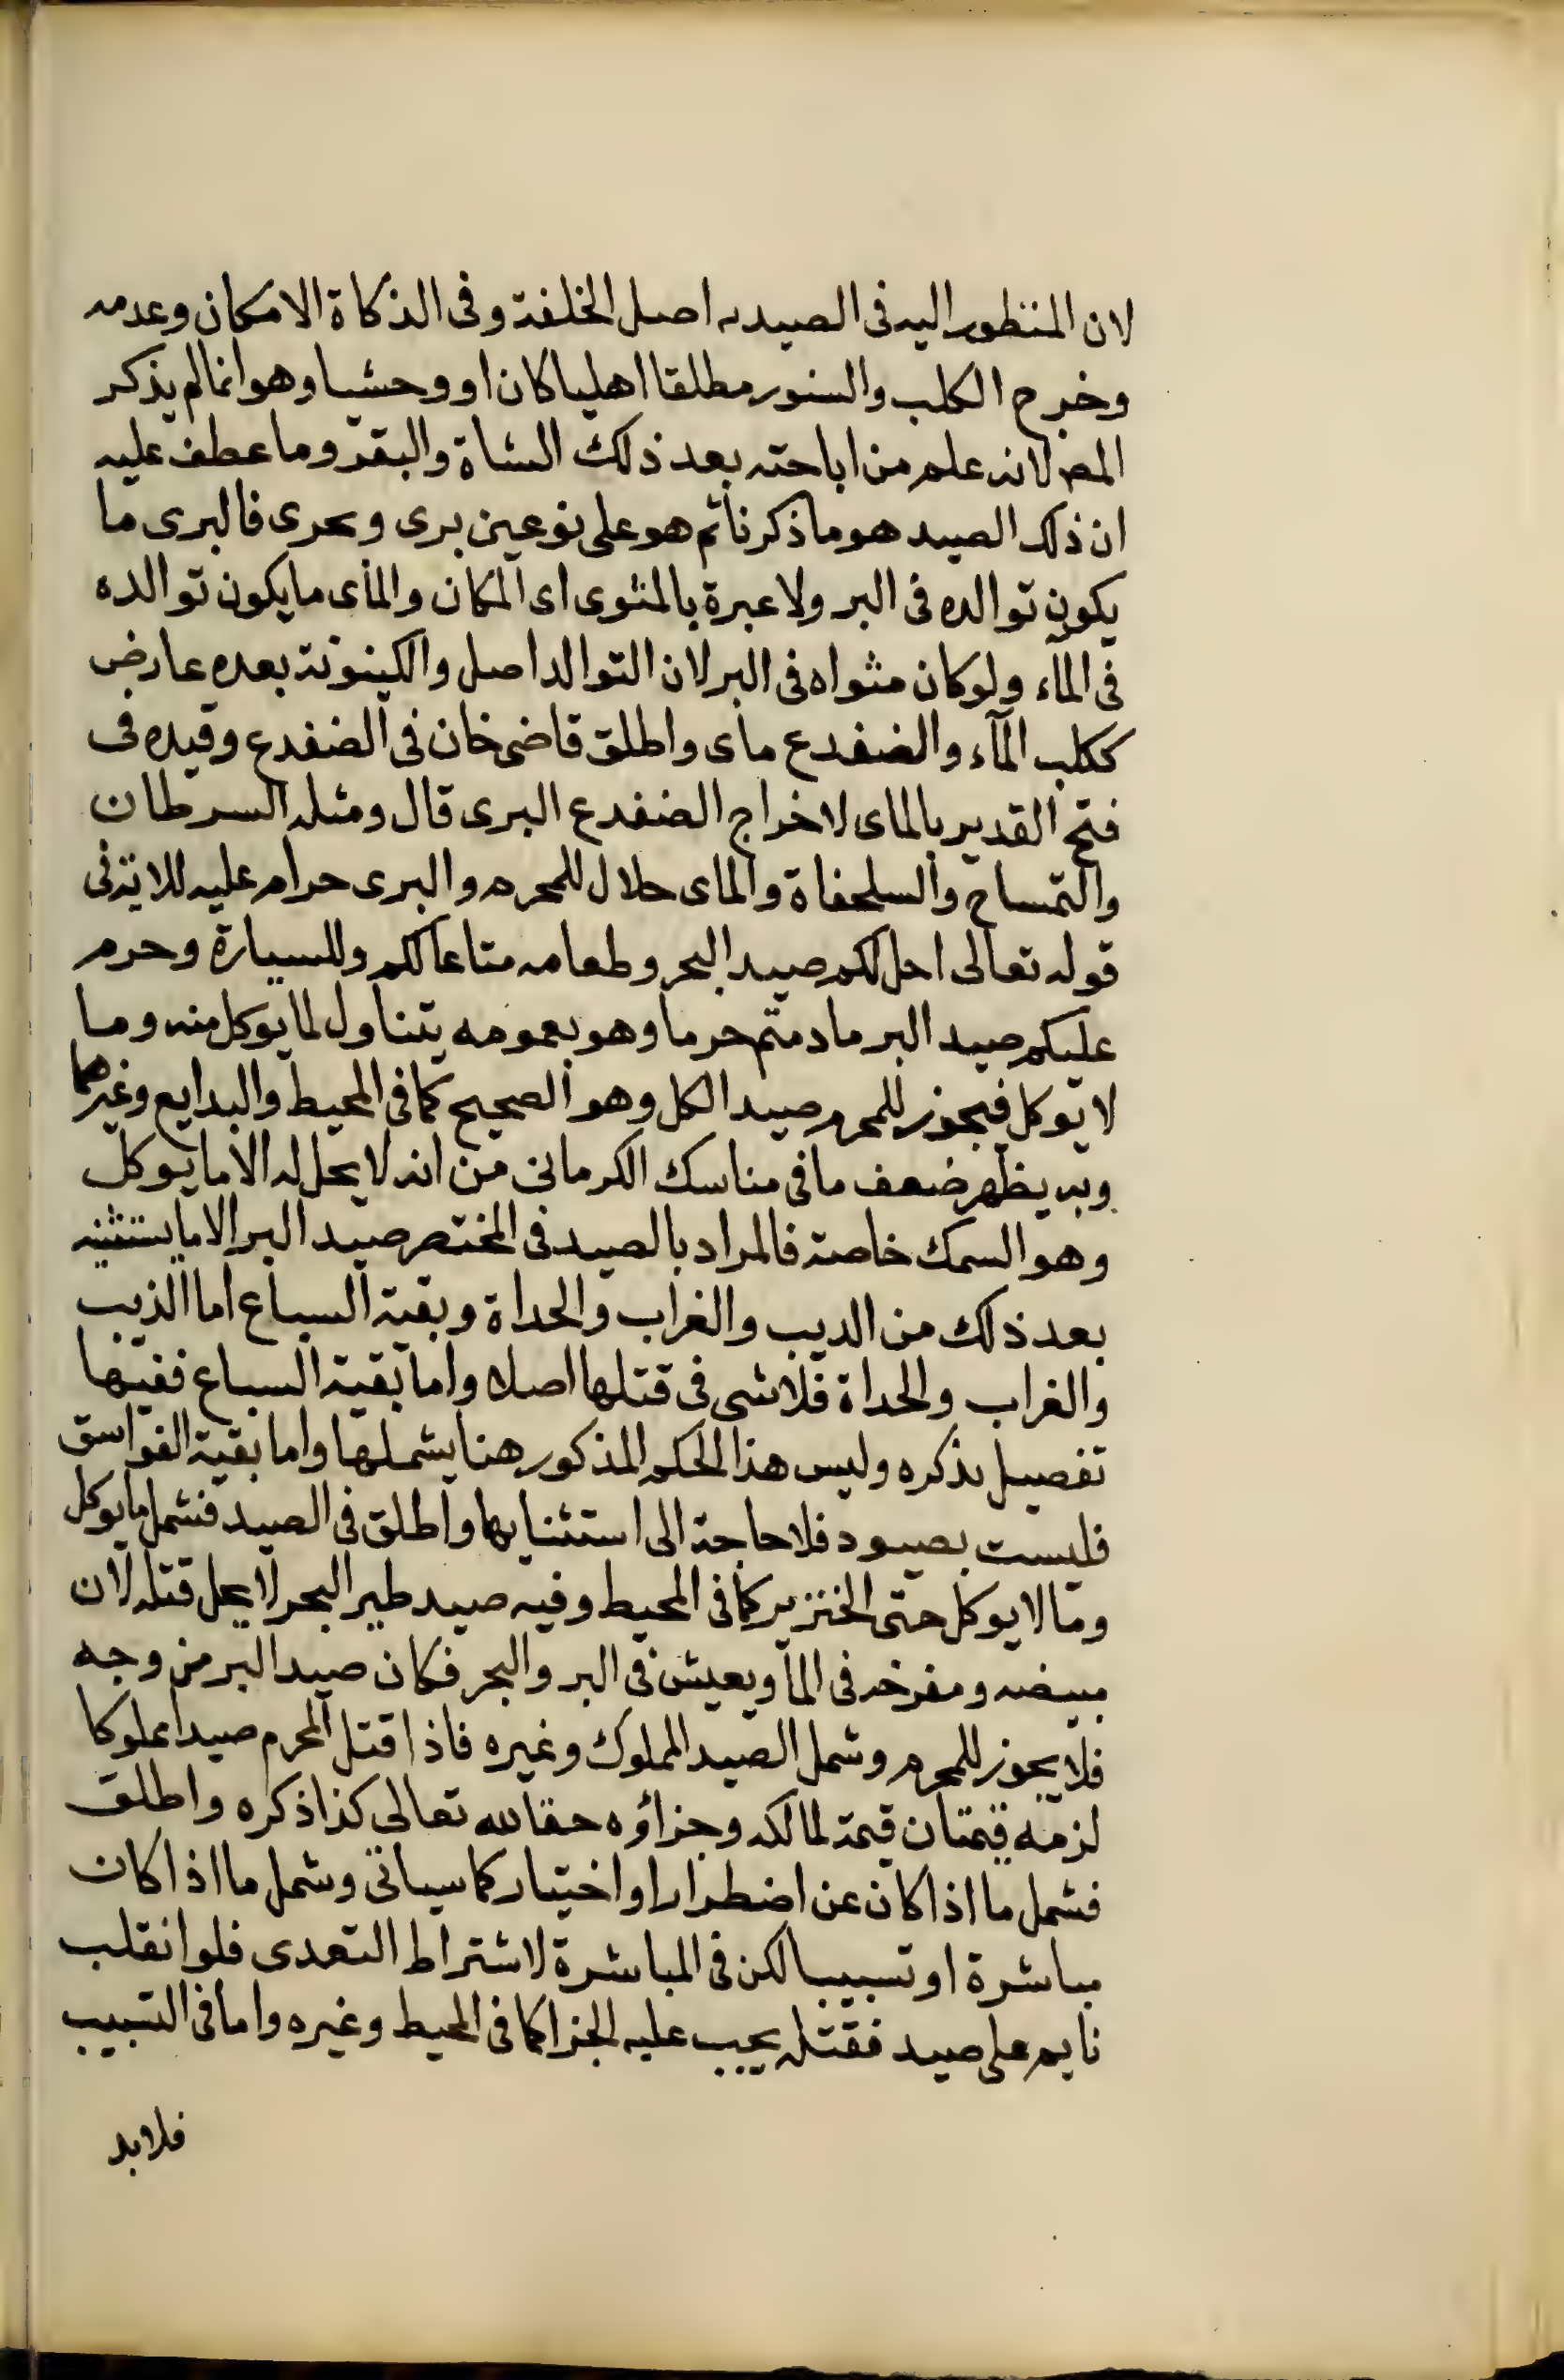 لان المنظور اليه فى الصيديه اصل الخلفة وفى الذكاة الامكان وعدمه
وخرج الكلب والسنور مطلقا اهليا كان او وحشيا وهو انما لم يذكر
المص لانه علم من اباحته بعد ذلك الشاة والبقر وما عطف عليه
ان ذلك الصيد هو ما ذكرنا ثم هو على نوعين برى وبحرى فالبرى ما
يكون توالده فى البر ولا عبرة بالمثوى اى المكان والمأى ما يكون توالده
فى المآء ولو كان مثواه فى البر لان التوالد اصل والكينونة بعده عارض
ككلب المآء والضفدع ماى واطلق قاضى خان فى الضفدع وقيده فى
فتح القدير بالماى لاخراج الضفدع البرى قال ومثله السرطان
والتمساح والسلحفاة والماى حلال للمحرم والبرى حرام عليه للايتى
قوله تعالى احل لكم صيد البحر وطعامه متاعا لكم وللسيارة وحرم
عليكم صيد البر ما دمتم حرما وهو بعمومه يتناول لما يوكل منه وما
لا يوكل فيجوز للمحرم صيد الكل وهو الصحيح كما فى المحيط والبدايع وغيرهما
وبه يظهر ضعف ما فى مناسك الكرمانى من انه لا يحل له الا ما يوكل
وهو السمك خاصة فالمراد بالصيد فى المختصر صيد البر الا ما يستثنيه
بعد ذلك من الديب والغراب والحداة وبقية السباع اما الذيب
والغراب والحداة فلا شى فى قتلها اصلا واما بقية السباع ففيها
تفصيل نذكره وليس هذا الحكم المذكور هنا يشملها واما بقية الفواسق
فليست بصيود فلا حاجة الى استثنايها واطلق فى الصيد فشمل ما يوكل
وما لا يوكل حتى الخنزير كما فى المحيط وفيه صيد طير البحر لا يحل قتله لان
مبيضه ومفرخه فى المأ ويعيش فى البر والبحر فكان صيد البر من وجه
فلا يجوز للمحرم وشمل الصيد المملوك وغيره فاذا قتل المحرم صيدا مملوكا
لزمه قيمتان قيمة لمالكه وجزاؤه حقا لله تعالى كذا ذكره واطلق
فشمل ما اذا كان عن اضطرار او اختيار كما سياتى وشمل ما اذا كان
مباشرة او تسببا لكن فى المباشرة لاشتراط التعدى فلو انقلب
نايم على صيد فقتله يجب عليه الجزا كما فى المحيط وغيره واما فى التسبيب
فلا بد